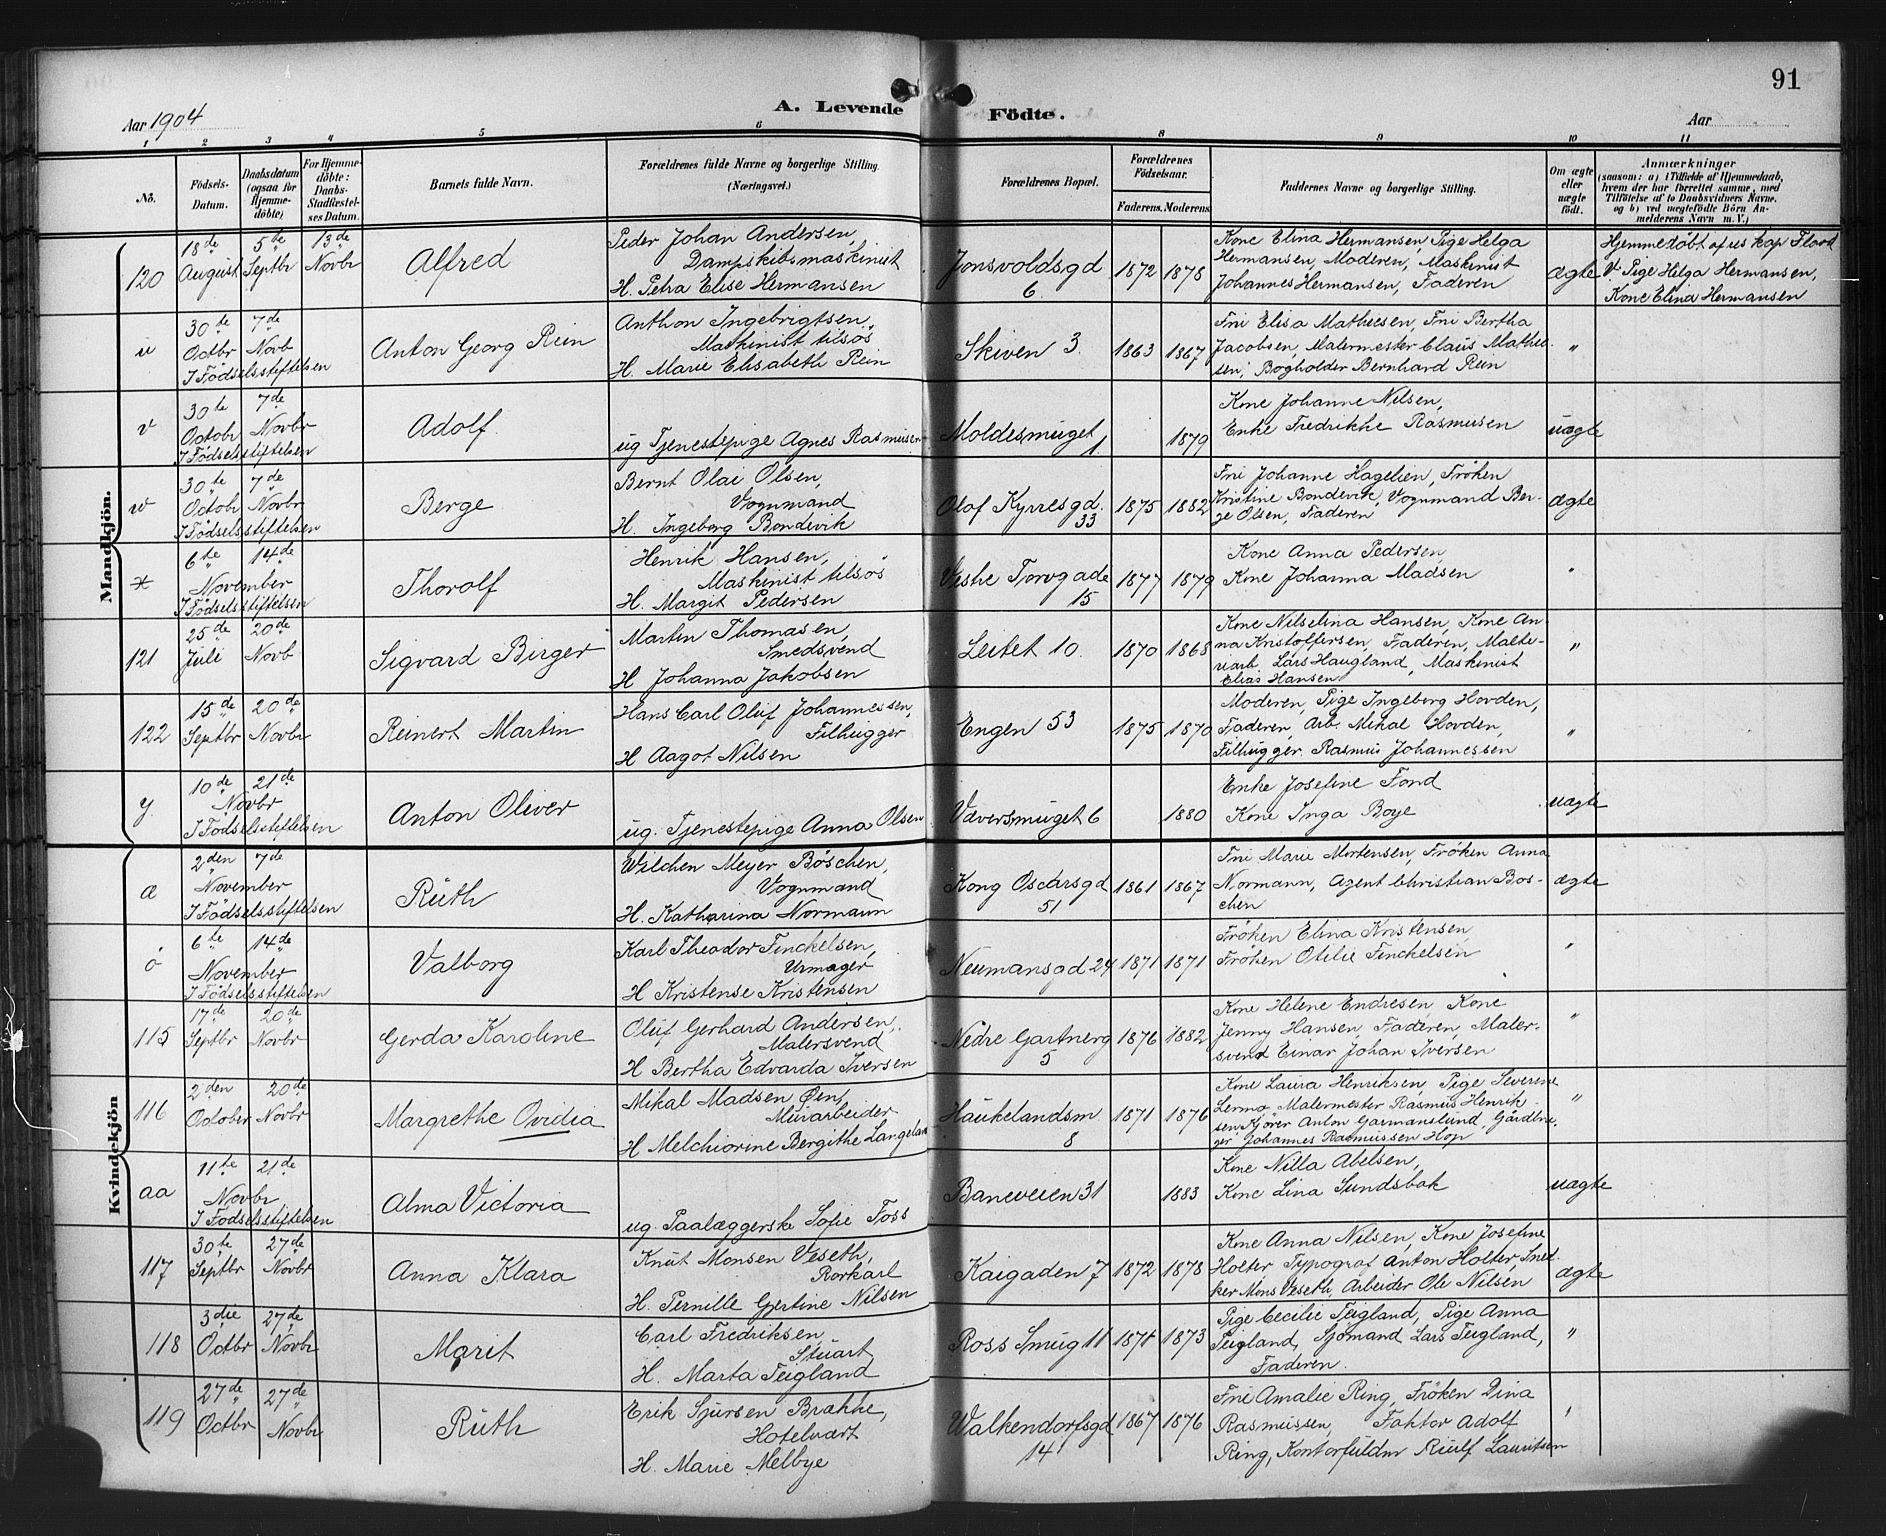 91
Aar 1904
A. Levende Födte.
Aar
1 2 3 4 5 6 8 9 10 11
No.
Födsels-Datum.
Daabsdatum (ogsaa for Hjemme-döbte)
For Hjemme-döbte: Daabs-Stadfæstel-ses Datum.
Barnets fulde Navn.
Forældrenes fulde Navne og borgerlige Stilling. (Næringsvei.)
Forældrenes Bopæl.
Forældrenes Födselsaar.
Faderens. Moderens.
Faddernes Navne og borgerlige Stilling.
Om ægte eller uægte födt.
Anmærkninger
(saasom: a) i Tilfælde af Hjemmedaab, hvem der har forrettet samme, med Tilföielse af to Daabsvidners Navne. og b) ved uægtefödte Börn An-melderens Navn m. V.)
Mandkjön.
120 18de August 5te Septbr 13de Novbr Alfred
Peder Johan Andersen,
Dampskibsmaskinist
H. Petra Elise Hermansen
Jonsvoldsgd 6 1872 1878
Kone Elina Hermansen, Pige Helga
Hermansen, Moderen, Maskinist
Johannes Hermansen, Faderen
ægte
Hjemmedøbt af res kap Flood
V. Pige Helga Hermansen,
Kone Elina Hermansen
u 30te Octbr 7de Novb Anton Georg Rein
I Födselsstiftelsen
Anthon Ingebrigtsen
Maskinist tilsøs
H. Marie Elisabeth Rein
Skiven 3. 1863 1867
Fru Elisa Mathiesen, Fru Bertha
Jacobsen, Malermester Claus Mathie-
sen, Bogholder Bernhard Rein
"
v 30te Octobr 7de Novbr Adolf
I Födselsstiftelsen
ug Tjenestepige Agnes Rasmusen
Moldesmuget 1 1879
Kone Johanne Nilsen,
Enke Fredrikke Rasmusen
uægte
w 30te Octobr 7de Novbr Berge
I Födselsstiftelsen
Bernt Olai Olsen,
Vognmand
H. Ingeborg Bondevik
Olaf Kyrresgd. 33 1875 1882
Fru Johanne Hagelien, Frøken
Kristine Bondevik, Vognmand Ber-
ge Olsen, Faderen
ægte
x 6te 14de November Thorolf
I Födselsstiftelsen
Henrik Hansen,
Maskinist tilsøs
H. Margit Pedersen
Vestre Torvgade 15 1877 1879
Kone Anna Pedersen
Kone Johanna Madsen
"
121 25de Juli 20de Novb Sigvard Birger
Martin Thomasen,
Smedsvend
H Johanna Jakobsen
Leitet 10. 1870 1868
Kone Nilselina Hansen, Kone An-
na Kristoffersen, Faderen, Malte-
riarb. Lars Haugland, Maskinist
Elias Hansen
"
122 15de Septbr 20de Novbr Reinert Martin
Hans Carl Oluf Johannessen,
Filhugger
H Aagot Nilsen
Engen 53 1875 1870
Moderen, Pige Ingeborg Hovden,
Faderen, Arb. Mikal Hovden,
Filhugger Rasmus Johannessen
"
y. 10de 21de Novbr Anton Oliver
I Födselsstiftelsen
ug. Tjenestepige Anna Olsen
Væversmuget 6 1880
Enke Josefine Fond
Kone Inga Boye
uægte
Kvindekjön
æ 2den 7de November Ruth
I Födselsstiftelsen
Wilchen Meyer Böschen,
Vognmand
H. Katharina Normann
Kong Oscarsgd 51 1861 1867
Fru Marie Mortensen, Frøken Anna
Normann, Agent Christian Bos-
chen
ægte
ø 6te 14de November Valborg
I Födselsstiftelsen
Karl Theodor Finckelsen,
Urmager
H Kristense Kristensen
Neumansgd 24 1871 1871
Frøken Elina Kristensen
Frøken Otilie Finckelsen
"
115 17de Septbr 20de Novbr Gerda Karoline
Oluf Gerhard Andersen,
Malersvend
H Bertha Edvarda Iversen
Nedre Gartnerg 5 1876 1882
Kone Helene Endresen, Kone
Jenny Hansen, Faderen, Maler-
svend Einar Johan Iversen
"
116 2den October 20de Novbr Margrethe Ovidia
Mikal Madsen Øen,
Murarbeider
H Melchiorine Bergithe Langeland
Haukelandsm 8 1871 1876
Kone Laura Henriksen, Pige Severine
Lermo, Malermester Rasmus Henrik-
sen, Kjører Anton Garmanslund, Gårdbru-
ger Johannes Rasmussen Hop
"
aa 11te 21de Novbr Alma Victoria
I Födselsstiftelsen
ug. Paalæggerske Sofie Foss
Baneveien 31 1883
Kone Nilla Abelsen,
Kone Lina Sundsbak
uægte
117 30te Septbr 27de Novbr Anna Klara
Knut Monsen Veseth,
Rorkarl
H. Pernille Gjertine Nilsen
Kaigaden 7 1872 1878
Kone Anna Nilsen, Kone Josefine
Holter Typograf Anton Holter, Sned-
ker Mons Veseth, Arbeider Ole Nilsen
ægte
118 3die Octbr 27de Novbr Marit
Carl Fredriksen
Stuart
H. Marta Teigland
Ross Smug 11 1871 1873
Pige Cecilie Teigland, Pige Anna
Teigland, Sjömand Lars Teigland,
Faderen.
"
119 27de Octbr 27de Novbr Ruth
Erik Sjursen Brække,
Hotelvært
H. Marie Melbye
Walkendorfsgd 14 1867 1876
Fru Amalie Ring, Frøken Dina
Rasmussen, Faktor Adolf
Ring, Kontorfuldm Riulf Lauritsen
"